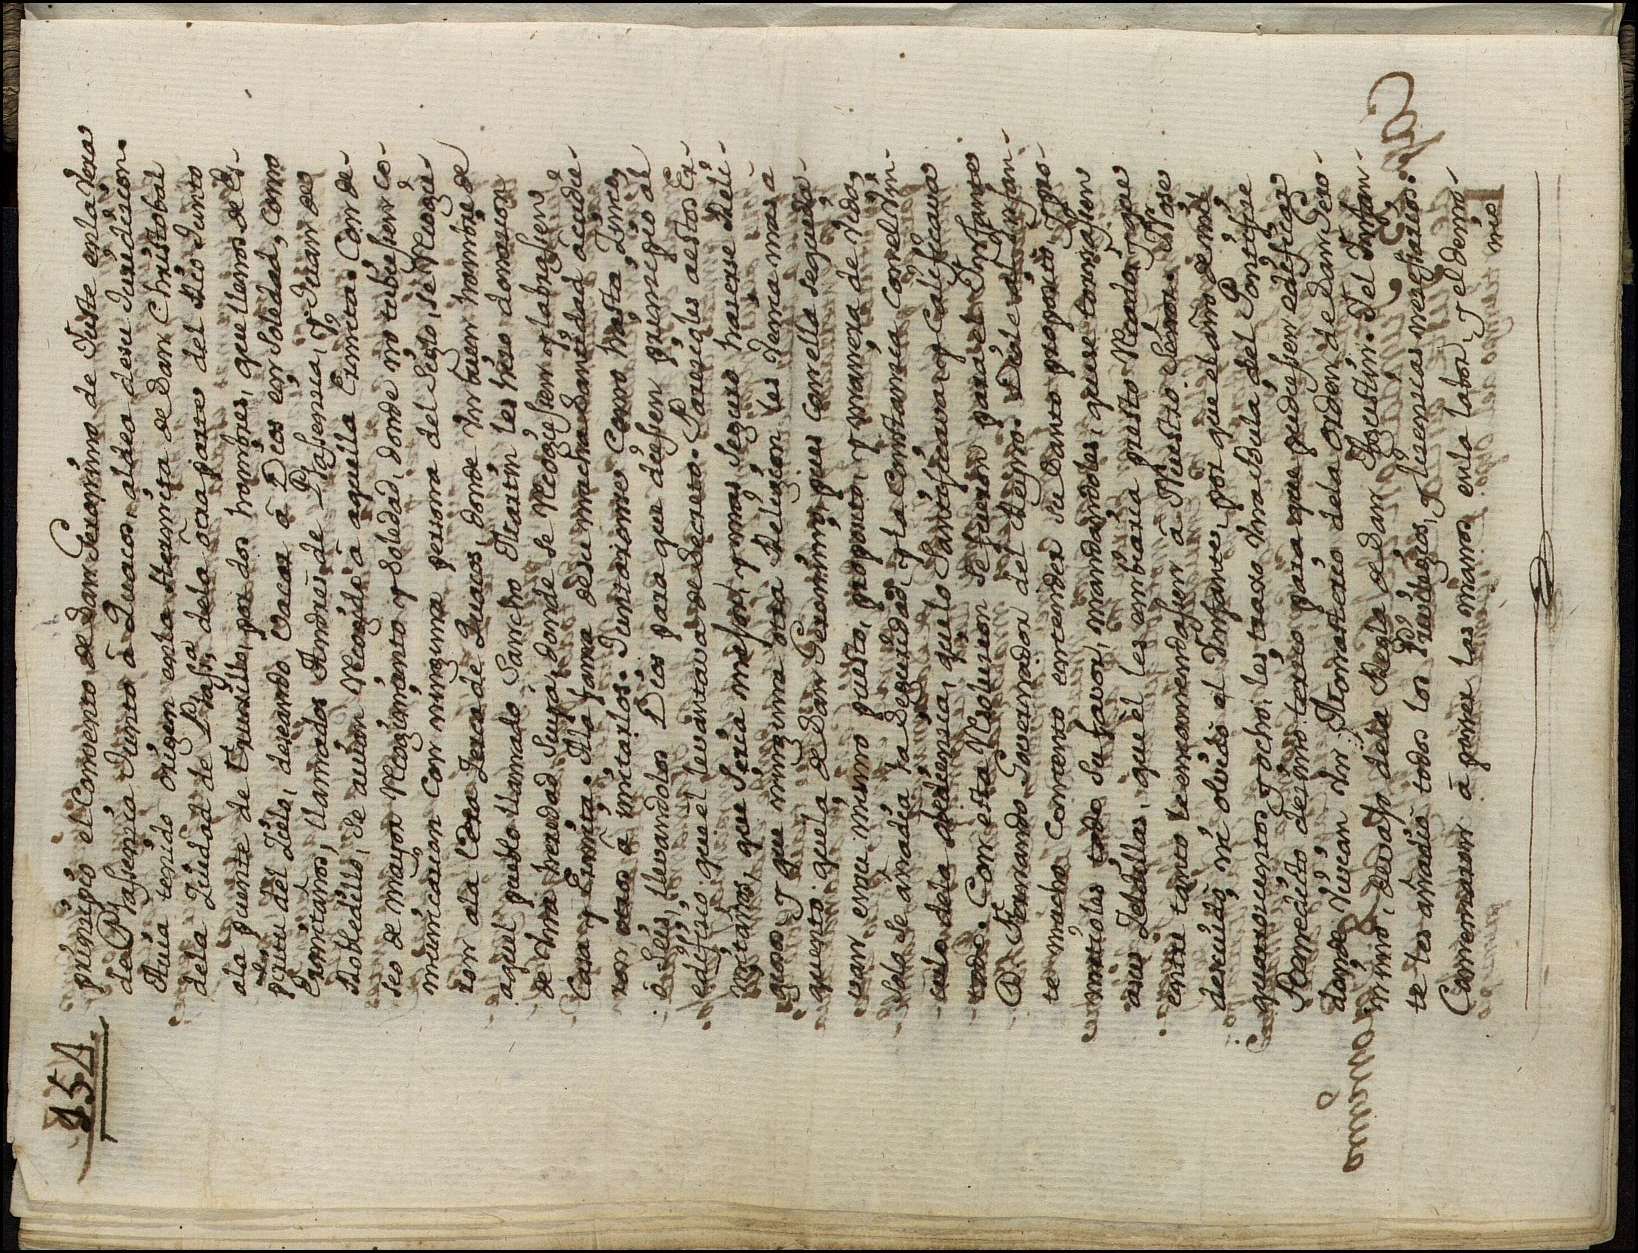 154.
prinçipio el Comvento de Dom Geronimo de Iuste en la Vera
de Plasençia Junto à Quacos, aldea de su Juridicion.
Auia tenido origen en la Hermita de Dan Christobal
dela Ziudad de Plasª, dela otra parte del Rio Junto
ala puente de Trujillo, por dos hombres, que lleuos de Es-
piritu del Zielo, deseando Vacar à Dios en Soledad, Como
Ermitaños, llamados Andres de Plasençia, y Juan de
Robledillo, se auian Recogido à aquella Ermita. Con de-
seo de mayor Recogimiento y Soledad, donde no tubiesen co-
municaçion Con ninguna persona del Siglo, se Recogie-
ron ala Vera Zerca de Quacos, donde Vn buen hombre de
aquel pueblo llamado Sancho Martin les hiço donaçion
de Vna heredad Suya, donde se Recogiesen y labrasen
Casa y Ermita. Ala fama de su mucha Santidad acudie-
ron otros a imitarlos. Juntaronse Como hasta Zinco,
ò Seis, lleuandolos Dios para que diesen prinçipio al
edifiçio, que el leuantaua de Secreto. Pareçioles a estos Er-
mitaños, que Seria mejor, y mas Seguro haçerse Reli-
giosos y que ninguna otra Religion les Venia mas à
quento, que la de Dan Geronimo, pues Con ella seguirí-
uan en su mismo puesto, proposito, y manera de Vida,
solo se añadia la Seguridad, y la Constançia Con el vin-
culo dela obediençia, que lo Santificaua y Calificaua
todo. Con esta Resoluçion se fueron para el Infante
D. Fernando Gouernador del Reyno. Diole al Infan-
te mucho Contento entender su Santo proposito. Pro-
metioles todo Su fauor, mandandoles, que se tornasen
a sus Zeldillas, que èl les embiaria presto Recado, y que
entre tanto le encomendasen à Nuestro Señor. No se
descuidò, ni oluidò el Infante, por que el año de mill
quatroçientos y ocho, les traxo Vna bula del Pontifiçe
Benedicto deçimo terçio para que pudiesen edificar
donde Viuian Vn Monasterio dela orden de Dan Gero-
nimo, devajo dela Regla de Dan Agustin. Y el Infan-
te les añadiò todos los Priuilegios, y liçençias neçesarias.
Començaron à poner las manos en la labor, y el demo-
nio